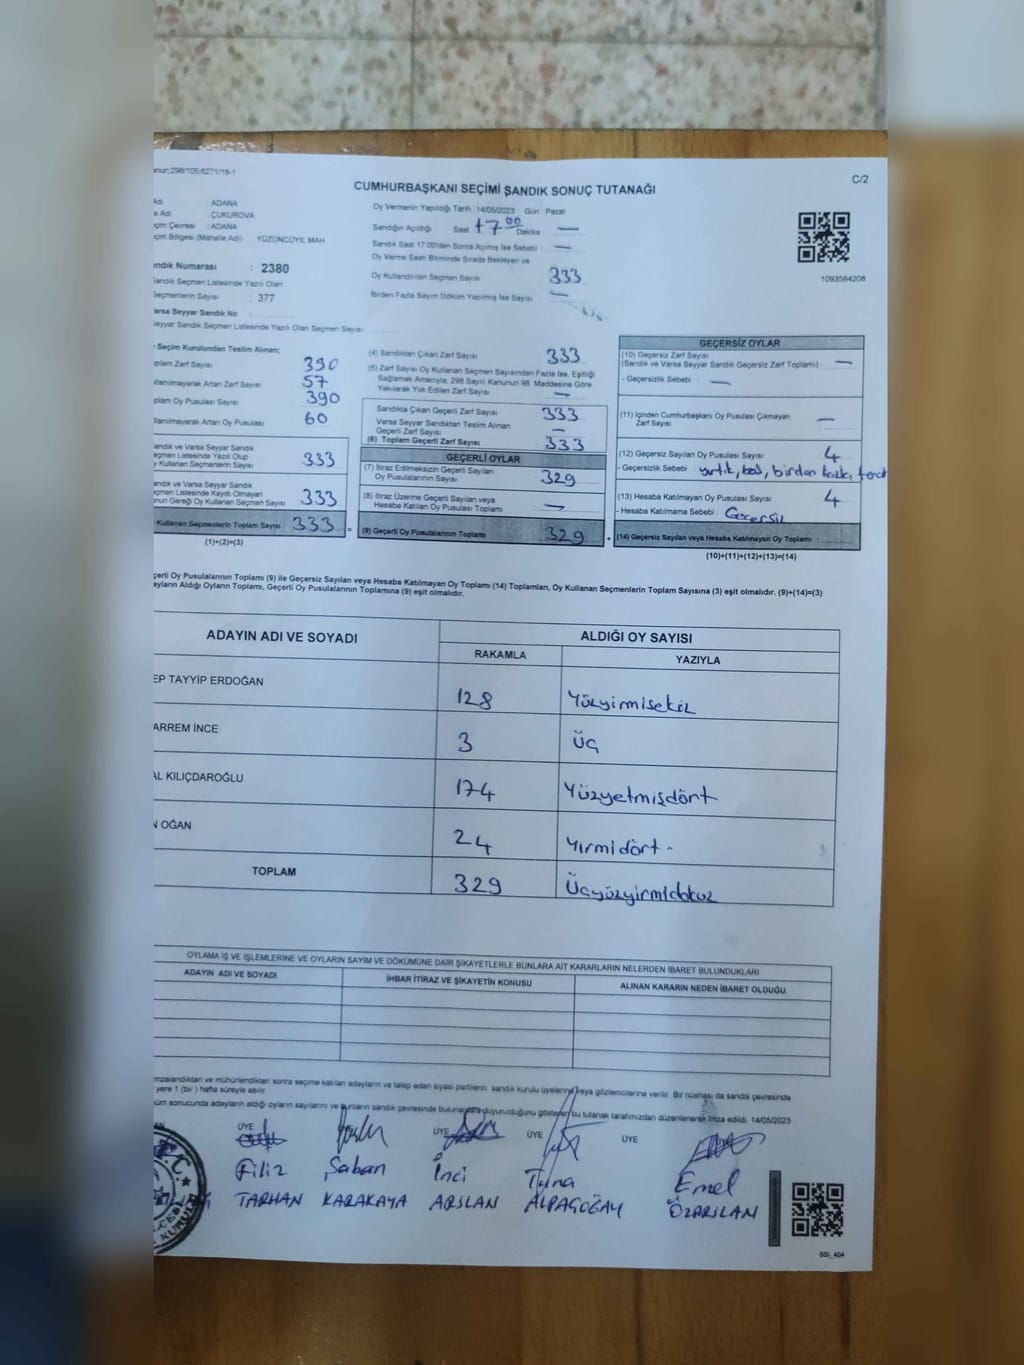 C/2
CUMHURBAŞKANI SEÇİMİ SANDIK SONUÇ TUTANAĞI
ADANA
e Adı ÇUKUROVA
çim Çevresi : ADANA
çim Bölgesi (Mahalle Adı) YÜZÜNCÜYIL MAH
ndık Numarası : 2380
andık Seçmen Listesinde Yazılı Olan
Seçmenlerin Sayısı : 377
arsa Seyyar Sandık No :
eyyar Sandık Seçmen Listesinde Yazılı Olan Seçmen Sayısı
Oy Vermenin Yapıldığı Tarih :14/05/2023 Gün : Pazar
Sandığın Açıldığı Saat 17.00 Dakika —
Sandık Saat 17:00'den Sonra Açılmış İse Sebebi : —
Oy Verme Saati Bitiminde Sırada Bekleyen ve
Oy Kullandırılan Seçmen Sayısı 333
Birden Fazla Sayım Döküm Yapılmış İse Sayısı —
1093584208
Seçim Kurulundan Teslim Alınan;
plam Zarf Sayısı 390
llanılmayarak Artan Zarf Sayısı 57
plam Oy Pusulası Sayısı 390
llanılmayarak Artan Oy Pusulası 60
andık ve Varsa Seyyar Sandık
eçmen Listesinde Yazılı Olup
y Kullanan Seçmenlerin Sayısı 333
andık ve Varsa Seyyar Sandık
eçmen Listesinde Kayıtlı Olmayan
nun Gereği Oy Kullanan Seçmen Sayısı 333
Kullanan Seçmenlerin Toplam Sayısı 333 =
(1)+(2)=(3)
(4) Sandıktan Çıkan Zarf Sayısı 333
(5) Zarf Sayısı Oy Kullanan Seçmen Sayısından Fazla İse, Eşitliği
Sağlamak Amacıyla, 298 Sayılı Kanunun 98. Maddesine Göre
Yakılarak Yok Edilen Zarf Sayısı —
Sandıkta Çıkan Geçerli Zarf Sayısı 333
Varsa Seyyar Sandıktan Teslim Alınan
Geçerli Zarf Sayısı —
(6) Toplam Geçerli Zarf Sayısı 333
GEÇERLİ OYLAR
(7) İtiraz Edilmeksizin Geçerli Sayılan
Oy Pusulalarının Sayısı 329
(8) İtiraz Üzerine Geçerli Sayılan veya
Hesaba Katılan Oy Pusulaları Toplamı —
(9) Geçerli Oy Pusulalarının Toplamı 329 +
GEÇERSİZ OYLAR
(10) Geçersiz Zarf Sayısı
(Sandık ve Varsa Seyyar Sandık Geçersiz Zarf Toplamı) —
- Geçersizlik Sebebi : —
(11) İçinden Cumhurbaşkanı Oy Pusulası Çıkmayan
Zarf Sayısı —
(12) Geçersiz Sayılan Oy Pusulası Sayısı 4
- Geçersizlik Sebebi : yırtık, boş, birden fazla
(13) Hesaba Katılmayan Oy Pusulası Sayısı 4
- Hesaba Katılmama Sebebi : Geçersiz
(14) Geçersiz Sayılan veya Hesaba Katılmayan Oy Toplamı
(10)+(11)+(12)+(13)=(14)
çerli Oy Pusulalarının Toplamı (9) ile Geçersiz Sayılan veya Hesaba Katılmayan Oy Toplamı (14) Toplamları, Oy Kullanan Seçmenlerin Toplam Sayısına (3) eşit olmalıdır. (9)+(14)=(3)
ayların Aldığı Oyların Toplamı, Geçerli Oy Pusulalarının Toplamına (9) eşit olmalıdır.
ADAYIN ADI VE SOYADI ALDIĞI OY SAYISI
RAKAMLA YAZIYLA
EP TAYYİP ERDOĞAN 128 Yüzyirmisekiz
ARREM İNCE 3 Üç
AL KILIÇDAROĞLU 174 Yüzyetmişdört
N OĞAN 24 Yırmidört -
TOPLAM 329 Üçyüzyirmidokuz
OYLAMA İŞ VE İŞLEMLERİNE VE OYLARIN SAYIM VE DÖKÜMÜNE DAİR ŞİKAYETLERLE BUNLARA AİT KARARLARIN NELERDEN İBARET BULUNDUKLARI
ADAYIN ADI VE SOYADI İHBAR İTİRAZ VE ŞİKAYETİN KONUSU ALINAN KARARIN NEDEN İBARET OLDUĞU
mzalandıktan ve mühürlendikten sonra seçime katılan adayların ve talep eden siyasi partilerin sandık kurulu üyelerine veya gözlemcilerine verilir. Bir nüshası da sandık çevresinde
yere 1 (bir) hafta süreyle asılır.
üm sonucunda adayların aldığı oyların sayılarını ve bunların sandık çevresinde bulunanlara duyurulduğunu gösteren bu tutanak tarafımızdan düzenlenerek imza edildi. 14/05/2023
ÜYE ÜYE ÜYE ÜYE
Filiz Şaban İnci Tuna Emel
TARHAN KARAKAYA ARSLAN ALPAGOĞAY ÖZARSLAN
T.C.
SSİ_404